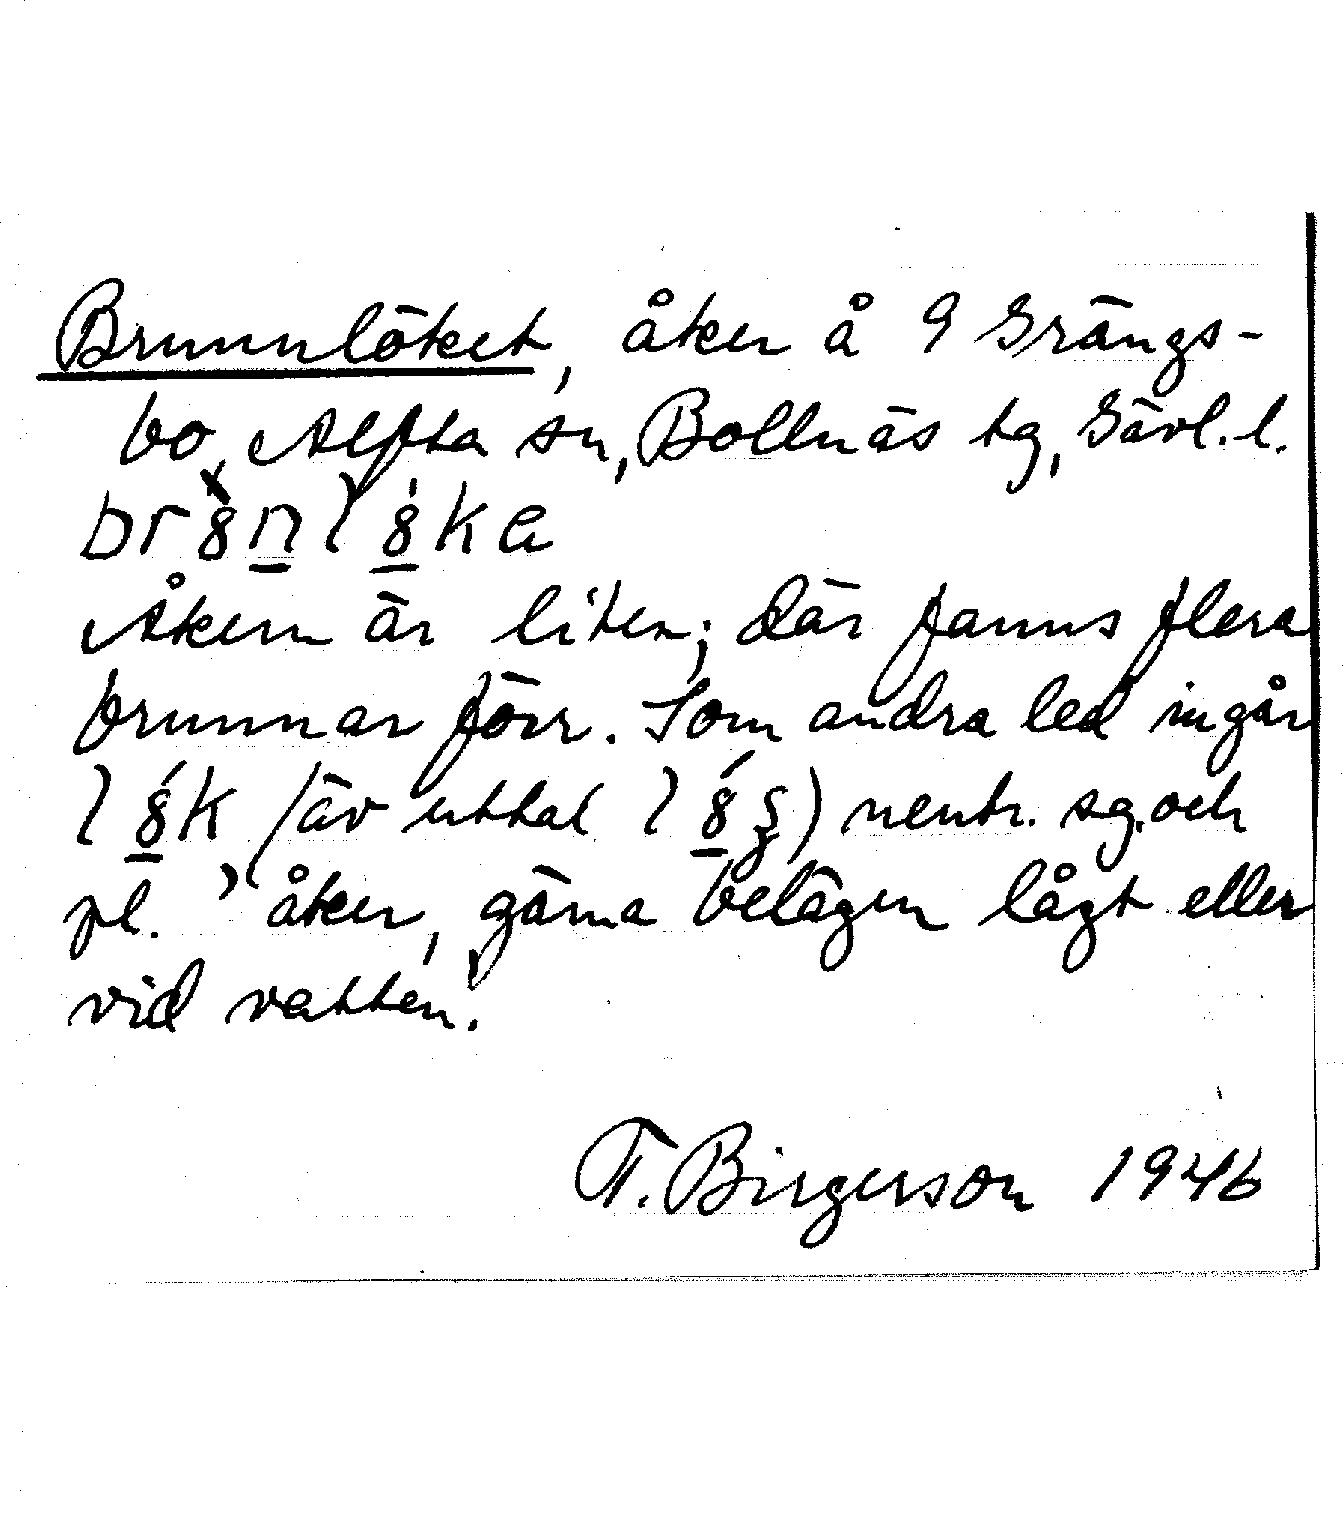 Brunnlöket, åker å 9 Grängs-
bo, Alfta sn, Bollnäs tg, Gävl. l.
br8nl8ka
Åkern är liten; där fanns flera
brunnar förr. Som andra led ingår
l8k (äv uttal l8ş) neutr. sg. och
pl. 'åker, gärna belägen lågt eller
vid vatten'.
T. Birgerson 1946